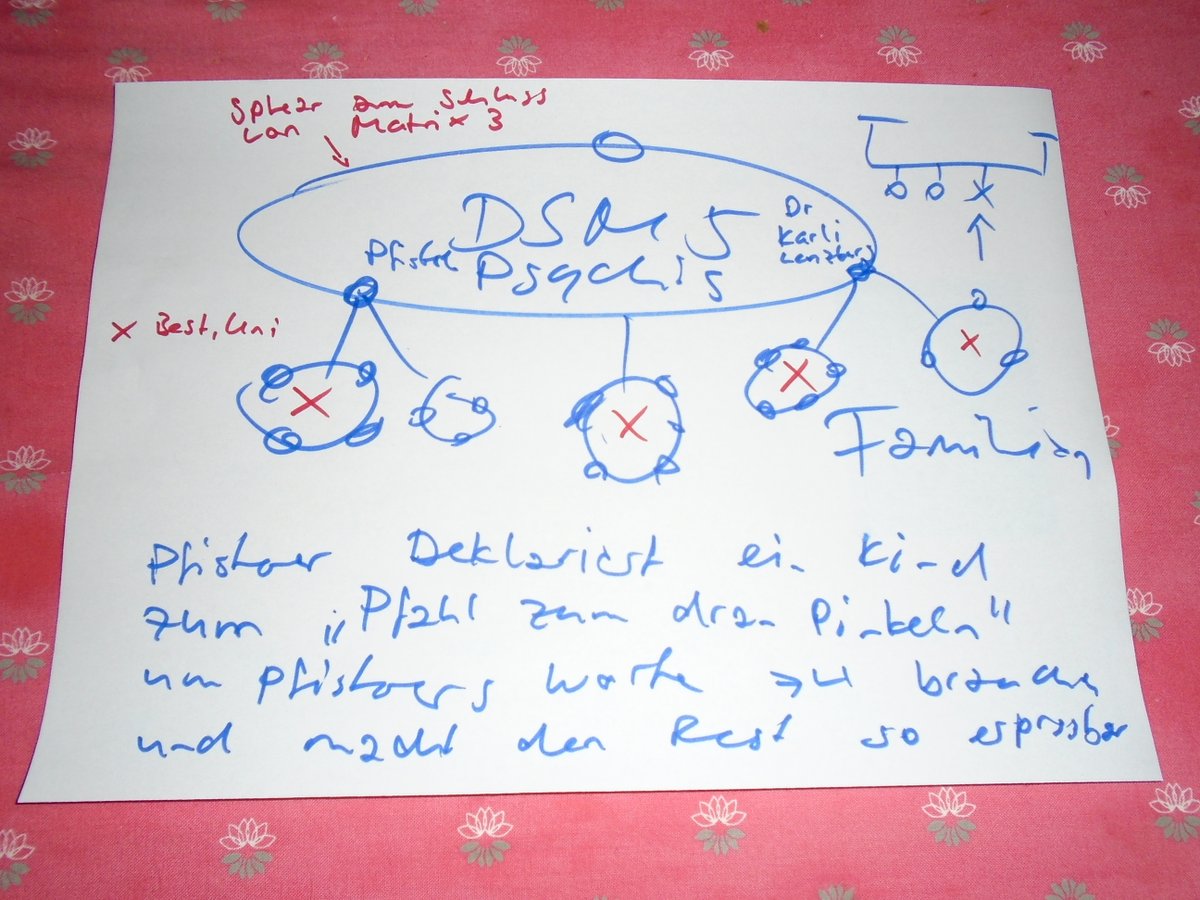 Sphär am Schluss
von Matrix 3
DSM 5
Psychis
Pfister
Dr
Karli
Lenzburg
x Best, Uni
Familien
Pfistoer Deklariest ein Kind
zum „Pfahl zum dran Pinkeln"
um Pfistoers Worte zu brauchen
und macht den Rest so erpressbar